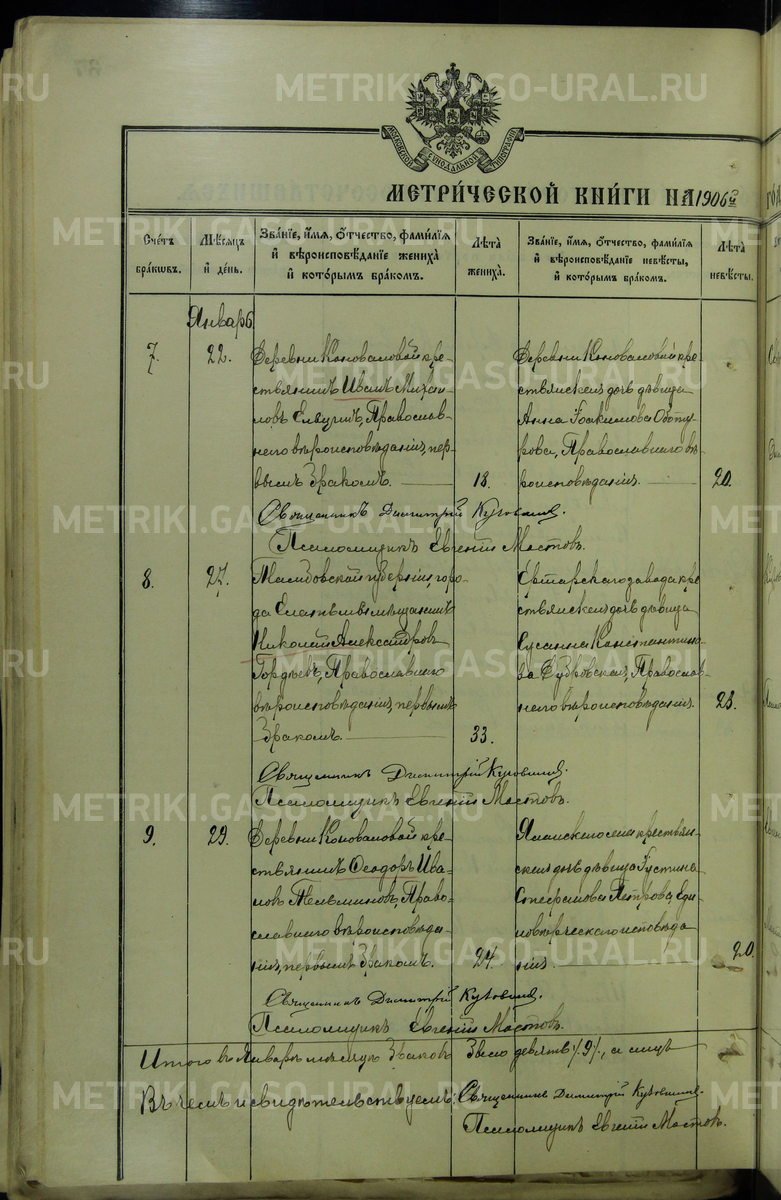 METRIKI.GASO-URAL.RU
МОСКОВСКОЙ СѴНОДАЛЬНОЙ ТИПОГРАФІИ
МЕТРИ́ЧЕСКОЙ КНИ́ГИ НА 1906й
Сче́тъ бра́кѡвъ.
Мѣ́сяцъ и҆ де́нь.
Зва́нїе, и҆́мѧ, ѻ҆́тчество, фами́лїѧ и҆ вѣроисповѣ́данїе жениха̀ и҆ кото́рымъ бра́комъ.
Лѣ́та жениха̀.
Зва́нїе, и҆́мѧ, ѻ҆́тчество, фами́лїѧ и҆ вѣроисповѣ́данїе невѣ́сты, и҆ кото́рымъ бра́комъ.
Лѣ́та невѣ́сты.
Январь
7. 22.
Деревни Коноваловой кре-
стьянинъ Иванъ Михаи-
ловъ, Православ-
наго вѣроисповѣданія, пер-
вымъ бракомъ.
18.
Деревни Коноваловой кре-
стьянская дочь дѣвица
Анна Іоакимова Оботу-
рова, Православнаго вѣ-
роисповѣданія.
20.
Священникъ Димитрій
Псаломщикъ Евгеній Мостовъ.
8. 27.
Тамбовской губерніи, горо-
да Елатьмы мѣщанинъ
Николай Александровъ
Гордѣевъ, Православнаго
вѣроисповѣданія, первымъ
бракомъ.
33.
завода кре-
стьянская дочь дѣвица
Сусанна Константино-
ва Православ-
наго вѣроисповѣданія.
23.
Священникъ Димитрій
Псаломщикъ Евгеній Мостовъ.
9. 29.
Деревни Коноваловой кре-
стьянинъ Ѳеодоръ Ива-
новъ Тельминовъ, Право-
славнаго вѣроисповѣда-
нія, первымъ бракомъ.
24.
села крестьян-
ская дочь дѣвица Іустина
Япрова, Еди-
новѣрческаго исповѣда-
нія
20.
Священникъ Димитрій
Псаломщикъ Евгеній Мостовъ.
Итого въ Январѣ мѣсяцѣ браковъ было девять /9/, а
Въ чемъ и свидѣтельствуемъ: Священникъ Димитрій
Псаломщикъ Евгеній Мостовъ.